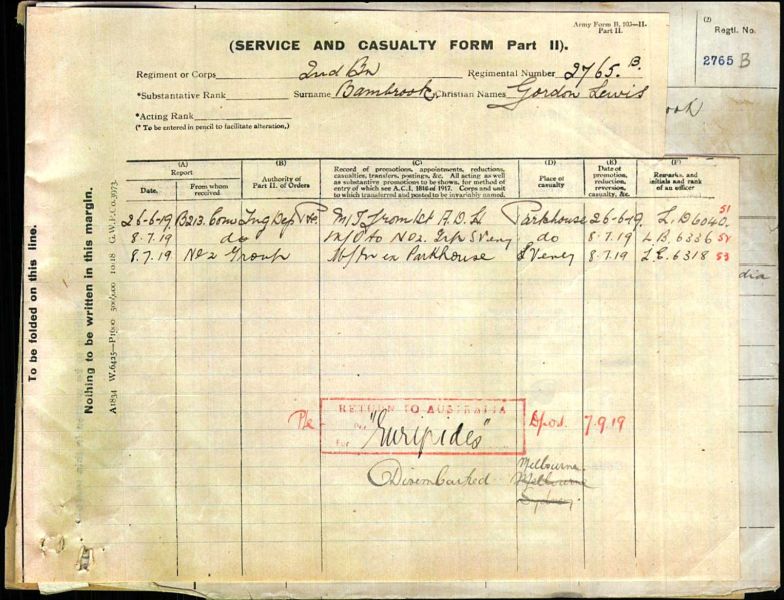 Army Form B. 103—II.
Part II.
(SERVICE AND CASUALTY FORM Part II).
Regiment or Corps 2nd Bn Regimental Number 2765. B.
*Substantive Rank Surname Bambrook Christian Names Gordon Lewis
*Acting Rank
(* To be entered in pencil to facilitate alteration.)
(A)
Report
Date.
From whom received
(B)
Authority of Part II. of Orders
(C)
Record of promotions, appointments, reductions, casualties, transfers, postings, &c. All acting as well as substantive promotions to be shown, for method of entry of which see A.C.I. 1816 of 1917. Corps and unit to which transferred and posted to be invariably named.
(D)
Place of casualty
(E)
Date of promotion, reduction, reversion, casualty, &c.
(F)
Remarks, and initials and rank of an officer
26-6-19. B213. Com Tng Dep Pte M/I from A.D.H Parkhouse 26-6-19. L.B 6040. 51
8.7.19 do M/O to No 2. Grp S Veny do 8.7.19 L.B. 6336 52
8.7.19 No 2 Group M/In ex Parkhouse S Veny 8.7.19 L.C. 6318 53
Pte RETURN TO AUSTRALIA
Per "Euripides" 7.9.19
Disembarked Melbourne.
Melbourne
Sydney
To be folded on this line.
Nothing to be written in this margin.
(2)
Regtl. No.
2765 B
ook
dia